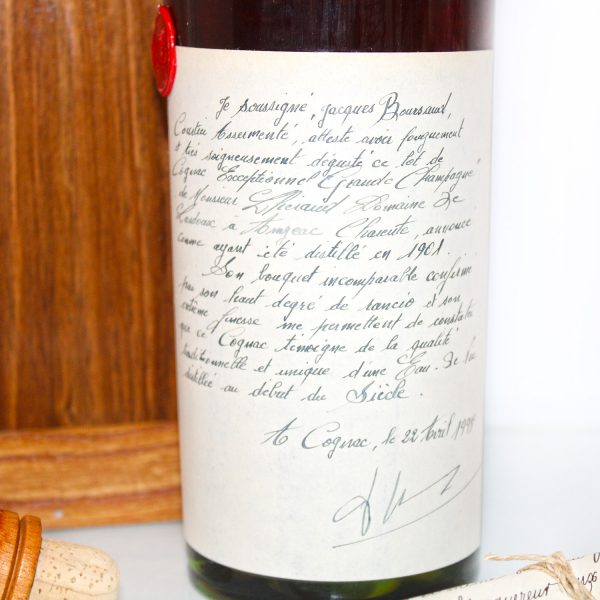 Je soussigné, Jacques Boursaud,
Courtier Assermenté, atteste avoir longuement
et très soigneusement dégusté ce lot de
Cognac Exceptionnel Grande Champagne
de Monsieur Lhéraud Domaine de
Lasdoux à Angeac Charente, annoncé
comme ayant été distillé en 1901.
Son bouquet incomparable confirmé
par son haut degré de rancio et son
extrême finesse me permettent de constater
que ce Cognac témoigne de la qualité
traditionnelle et unique d'une Eau.de.Vie
distillée au début du Siècle.
A Cognac, le 22 Avril